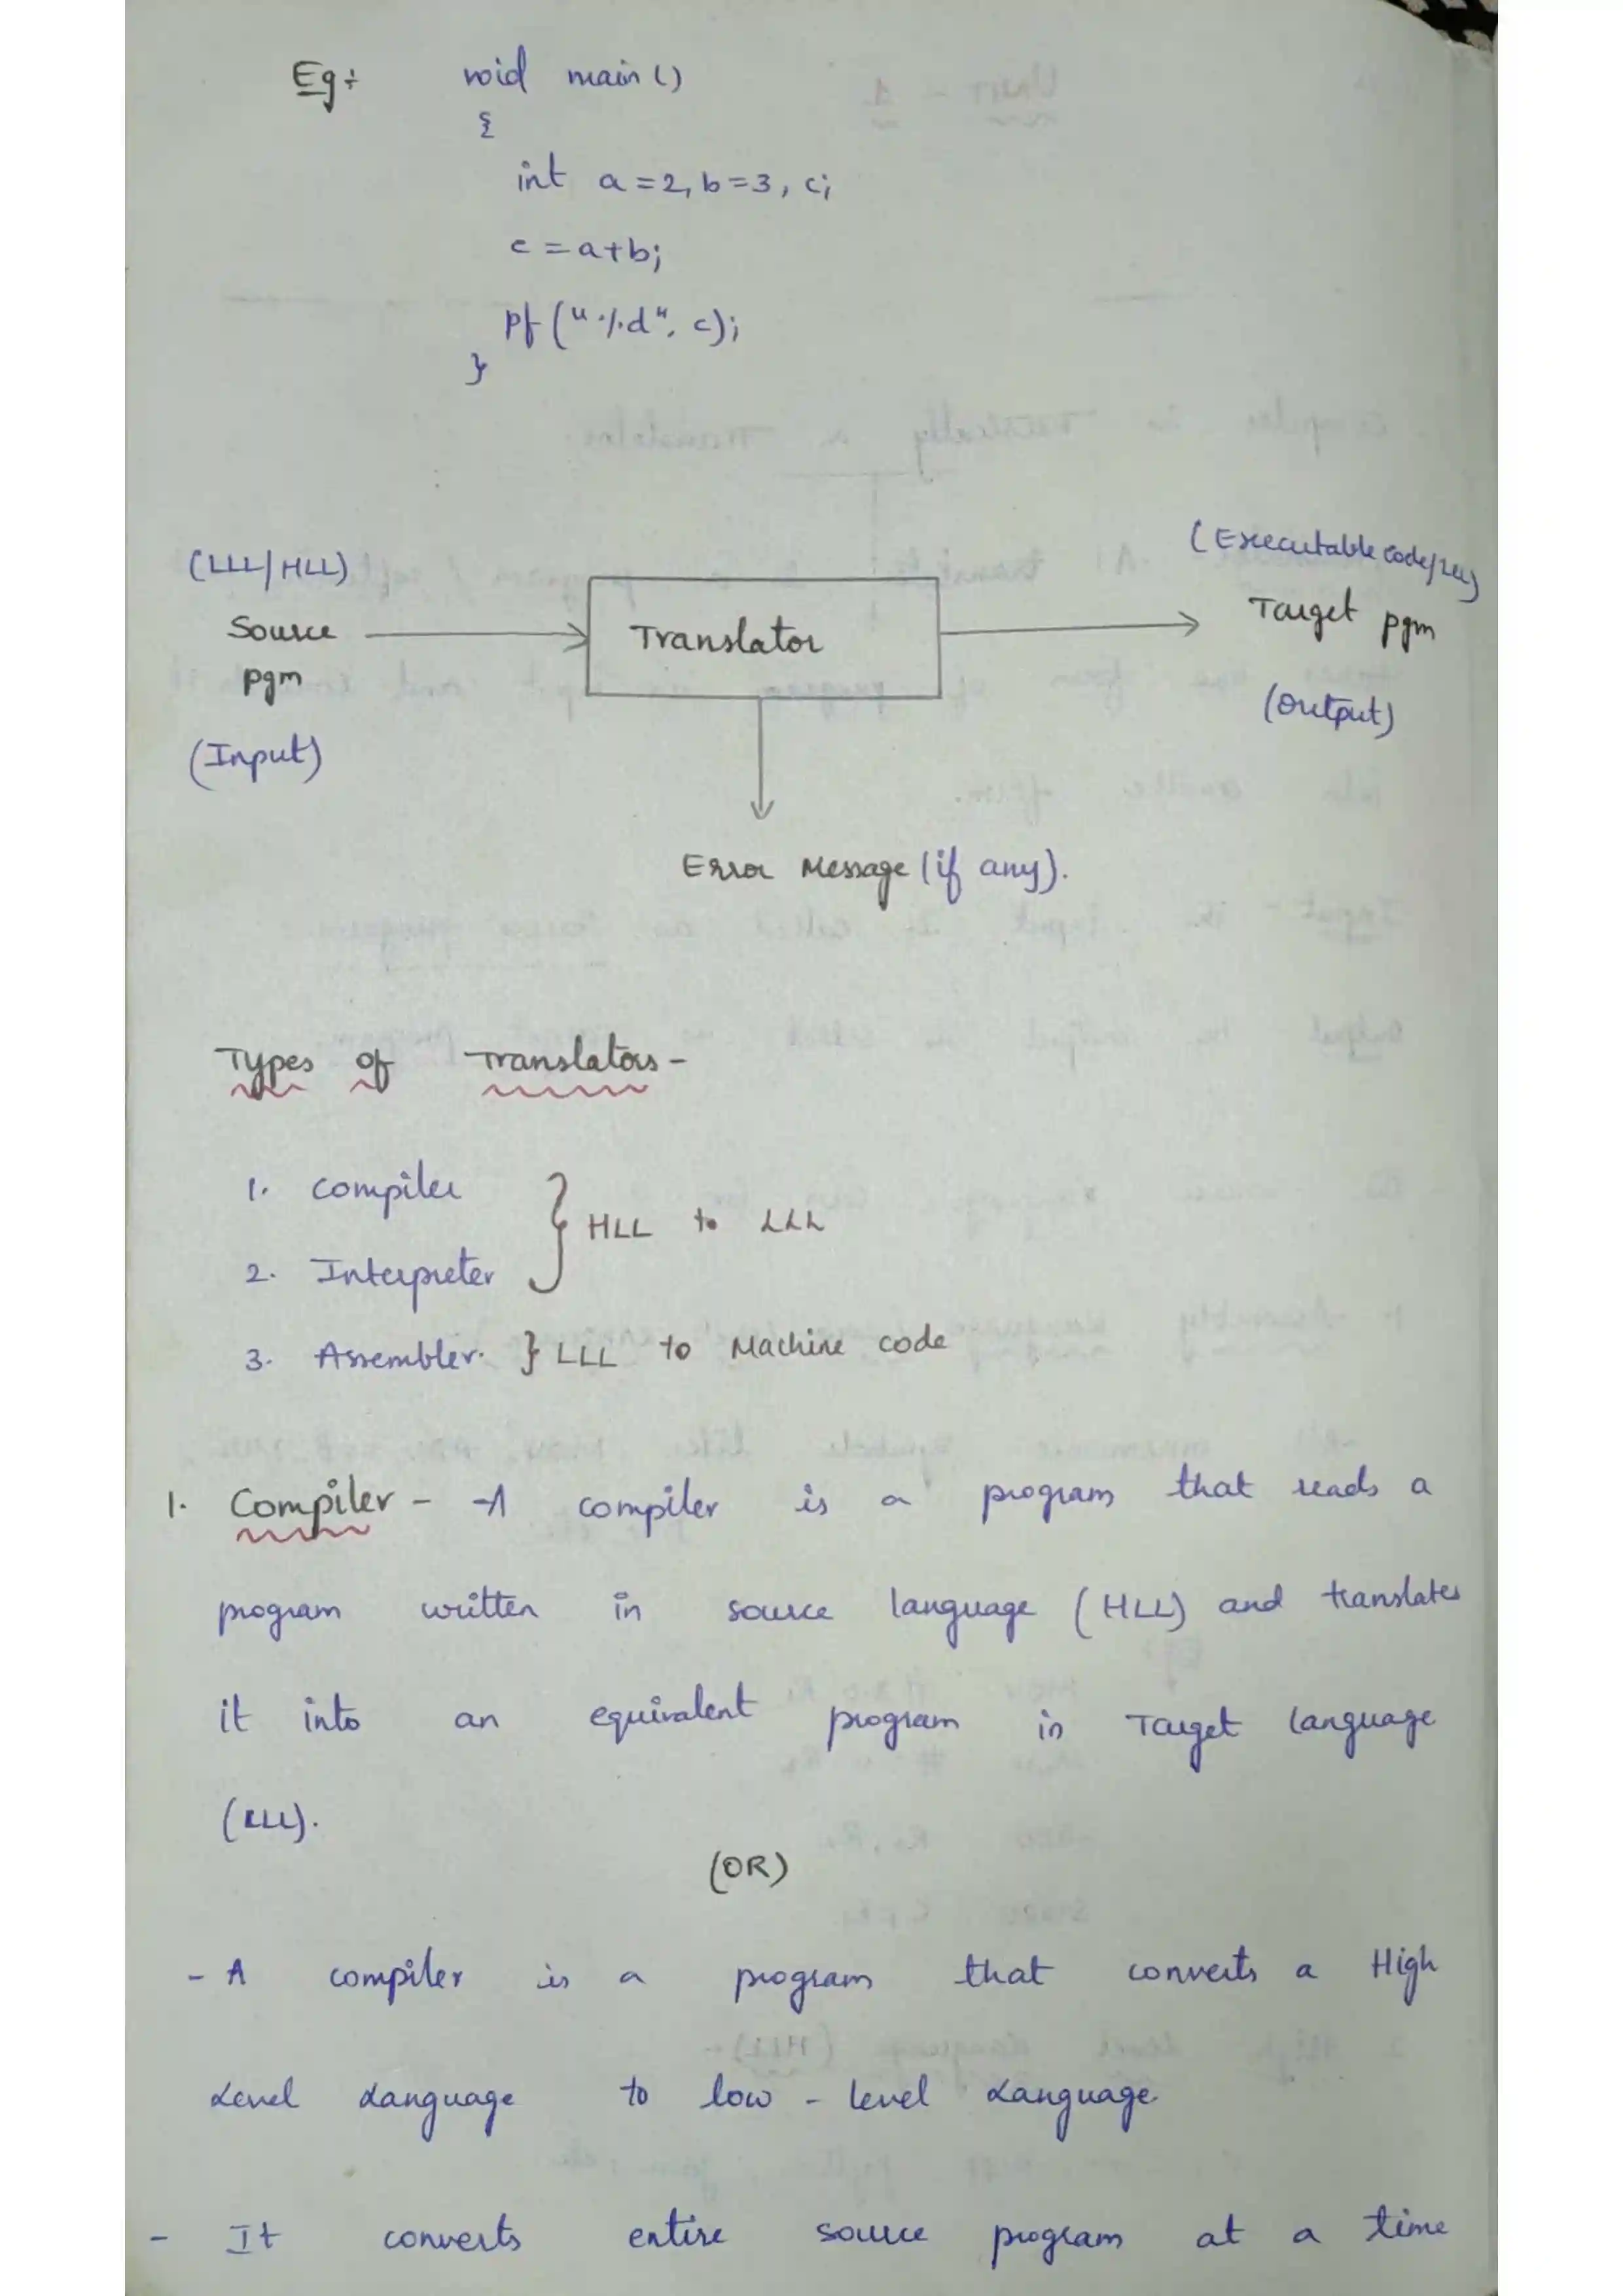 Eg:
void main()
{
int a=2, b=3, c;
c = a+b;
pf ("%d", c);
}
(LLL/HLL)
Source
pgm
(Input)
Translator
(Executable code/LLL)
Target pgm
(Output)
Error Message (if any).
Types of Translators -
1. Compiler
2. Interpreter
} HLL to LLL
3. Assembler. } LLL to Machine code
1. Compiler - A compiler is a program that reads a
program written in source language (HLL) and translates
it into an equivalent program in Target language
(LLL).
(OR)
- A compiler is a program that converts a High
Level Language to low - level Language.
- It converts entire source program at a time